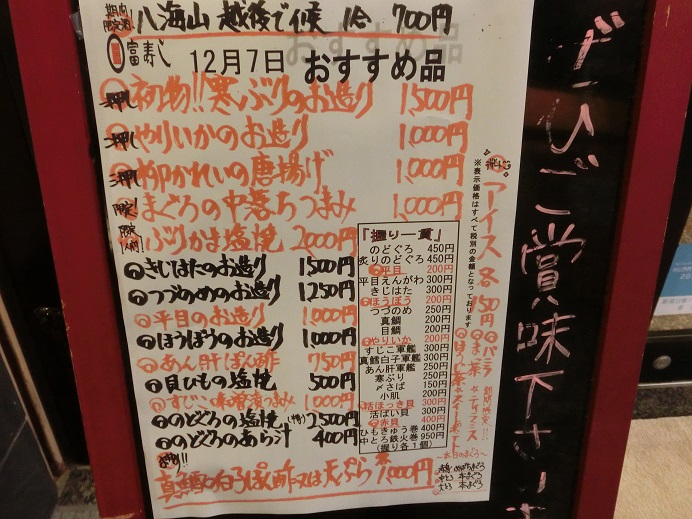 期間限定酒! 八海山 越後で候 1合 700円
富寿し 12月7日 おすすめ品
押し 初物!!寒ぶりのお造り 1,500円
押し やりいかのお造り 1,000円
押し 柳かれいの唐揚げ 1,000円
限定 まぐろの中落ちつまみ 1,000円
限定 ぶりかま塩焼 2000円
きじはたのお造り 1500円
つづのめのお造り 1250円
平目のお造り 1,000円
ほうぼうのお造り 1,000円
あん肝ぽん酢 750円
貝ひもの塩焼 500円
すじこ味噌漬つまみ 1,000円
のどぐろの塩焼 2500円
のどぐろのあら汁 400円
真鱈の白子ぽん酢又は天ぷら 1,000円
「握り一貫」
のどぐろ 450円
炙りのどぐろ 450円
平目 200円
平目えんがわ 300円
きじはた 300円
ほうぼう 200円
つづのめ 250円
真鯛 200円
目鯛 200円
やりいか 200円
すじこ軍艦 300円
真鱈白子軍艦 300円
あん肝軍艦 250円
寒ぶり 250円
〆さば 150円
小肌 200円
活ほっき貝 300円
活ばい貝 300円
赤貝 400円
ひもきゅう巻 400円
中とろ鉄火巻 950円
(握り各1個)
※表示価格はすべて税別の金額となっております
アイス 各150円
バニラ
まっ茶
ほうじ茶
ティラミス
スイートポテト
〜本日のまぐろ〜
中とろ 本まぐろ
大とろ 本まぐろ
ぜひご賞味下さいませ